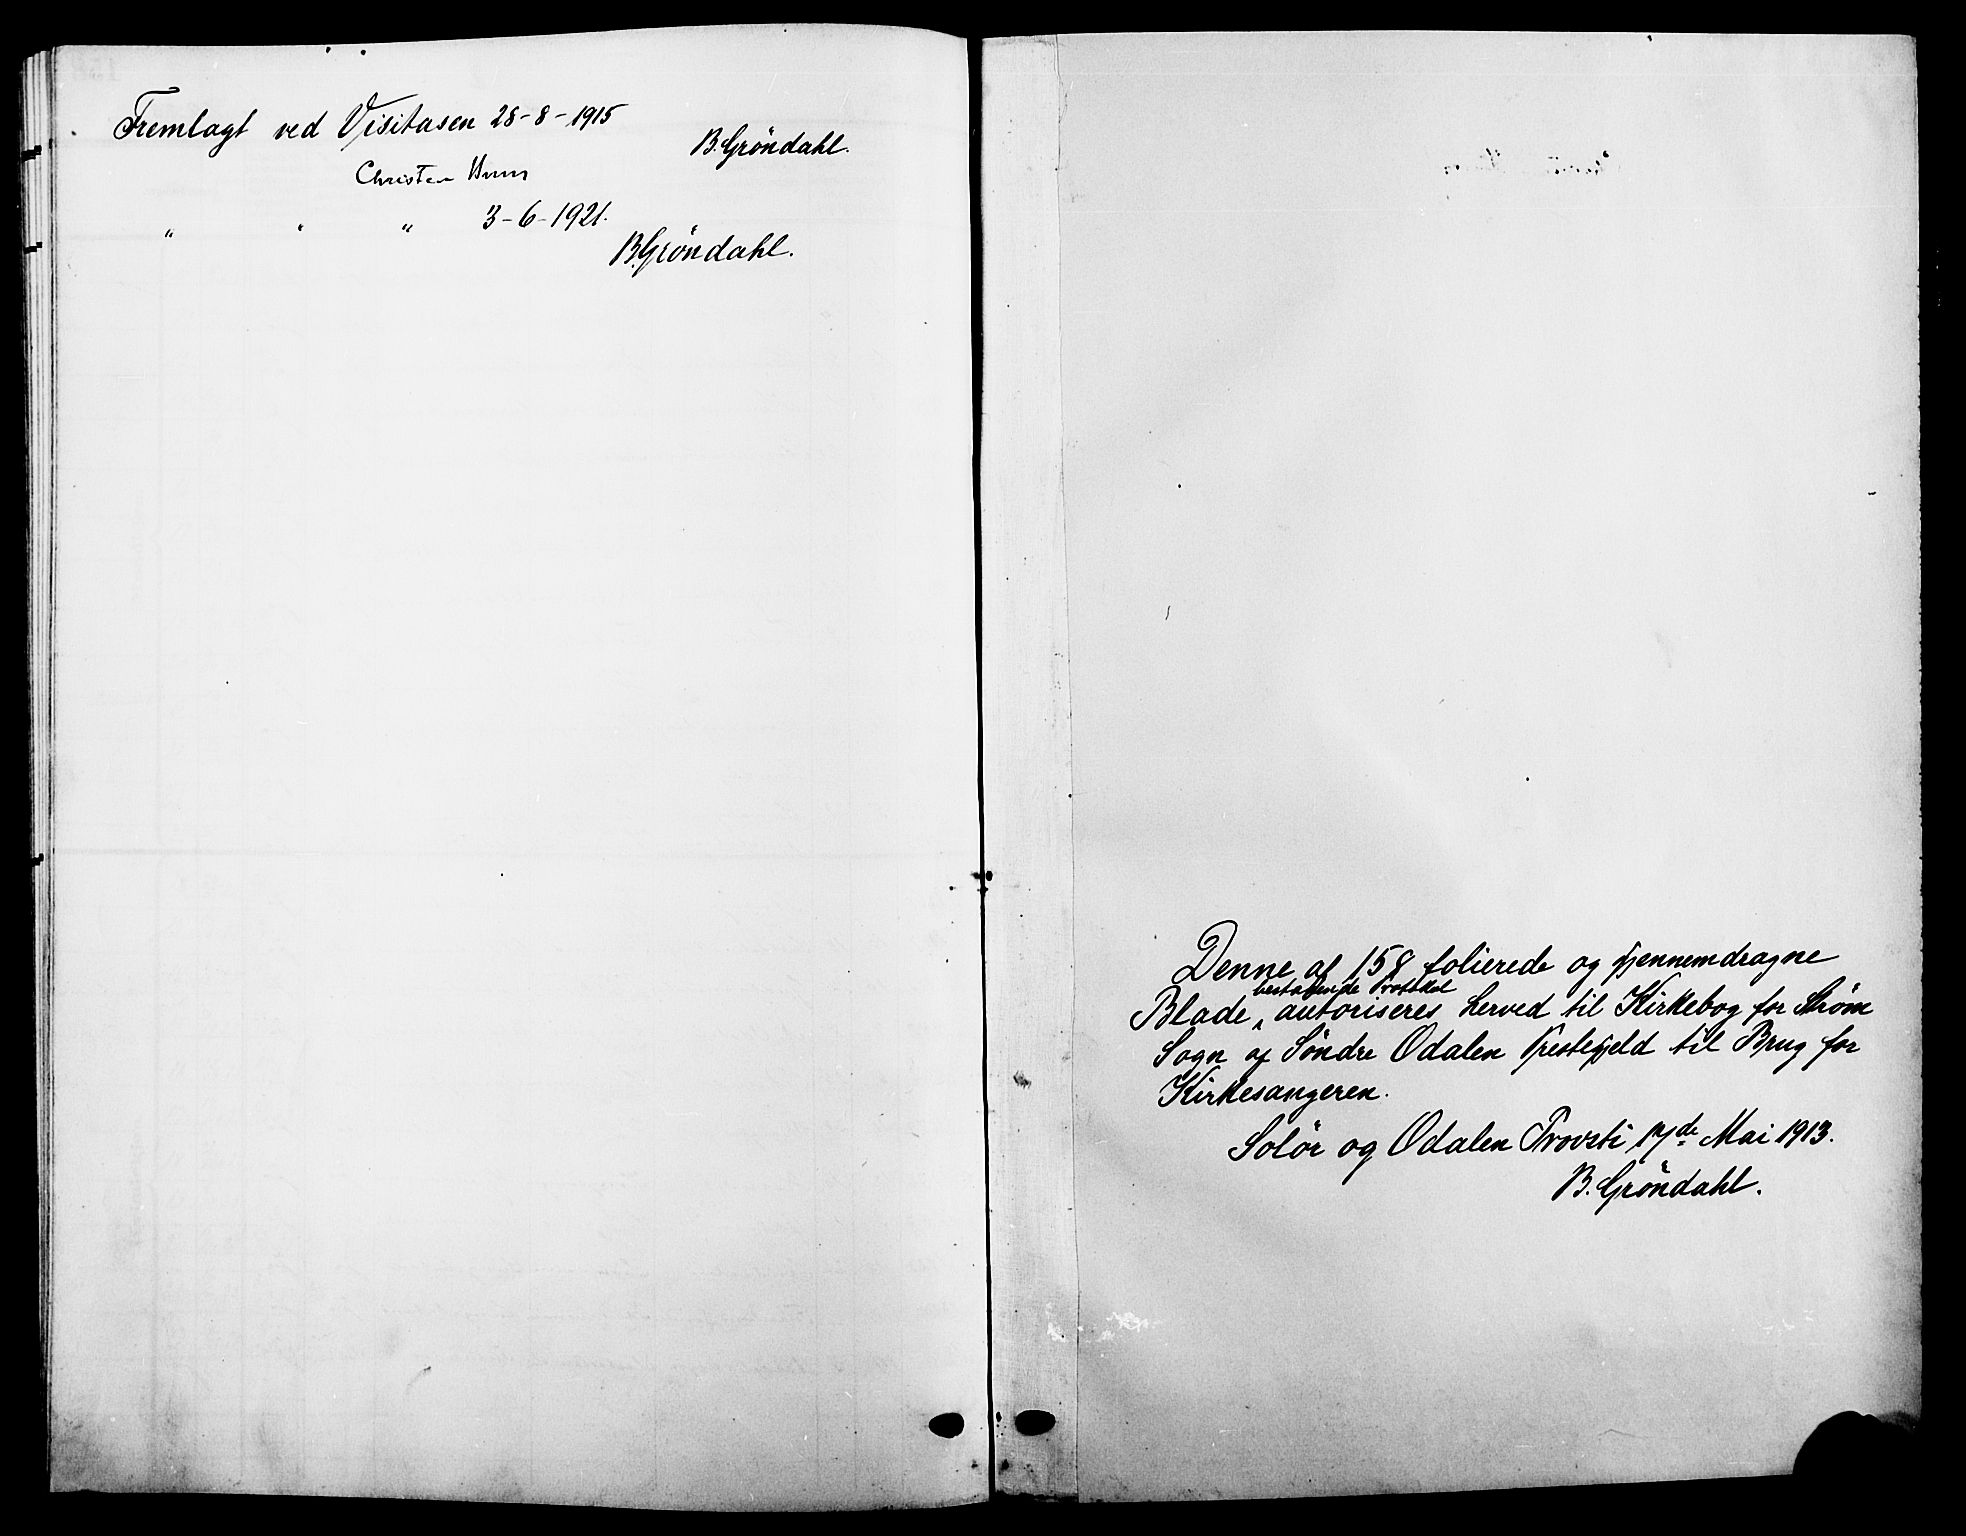 Fremlagt ved Visitasen 28-8-1915
B. Gröndahl.
Christen
" " " 3-6-1921.
B. Gröndahl.
Denne af 158 folierede og gjennemdragne
bestaaende Protokol
Blade ^ autoriseres herved til Kirkebog for Strøm
Sogn af Söndre Odalen Prestegjeld til Brug for
Kirkesangeren.
Solör og Odalen Provsti 17de Mai 1913.
B. Gröndahl.